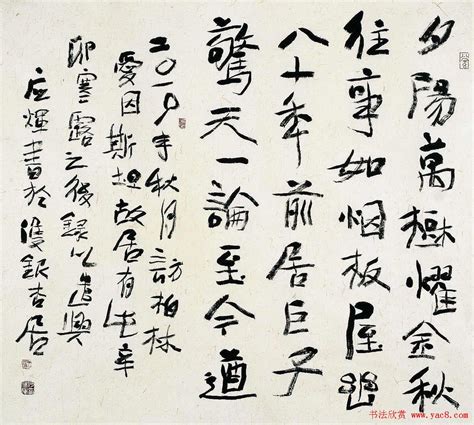 夕陽萬樹耀金秋
往事如烟板屋
八十年前居巨子
驚天一論至今道
二〇一〇年秋月訪柏林
愛因斯坦故居有辛
卯寒露之後録以遣興
应輝書於雙銀杏居
书法欣赏 www.yac8.com